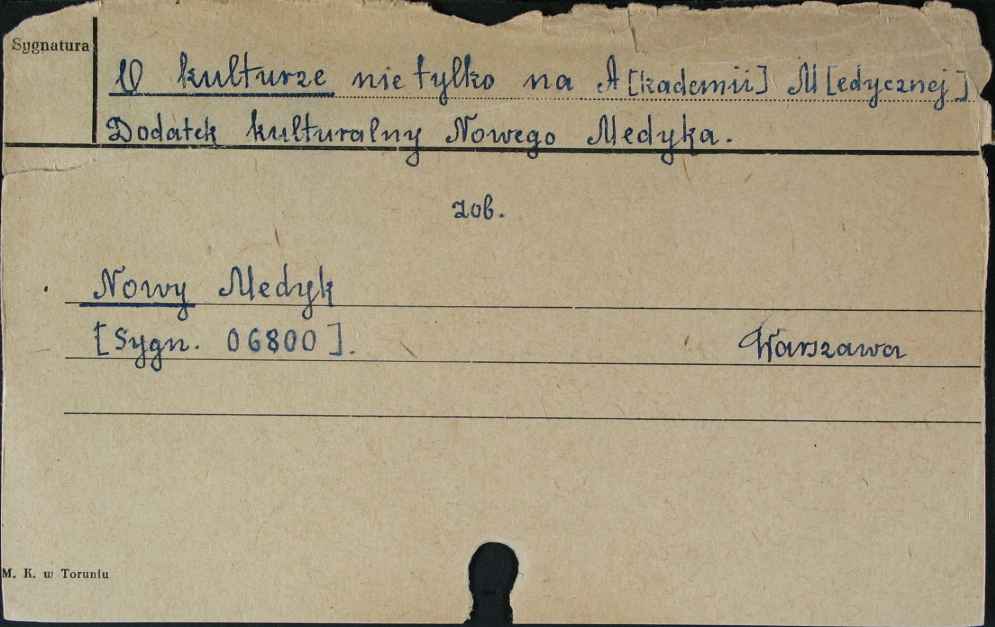 Sygnatura
O kulturze nie tylko na A[kademii] M[edycznej]
Dodatek kulturalny Nowego Medyka.
zob.
Nowy Medyk
[Sygn. 06800].
Warszawa
M. K. w Toruniu